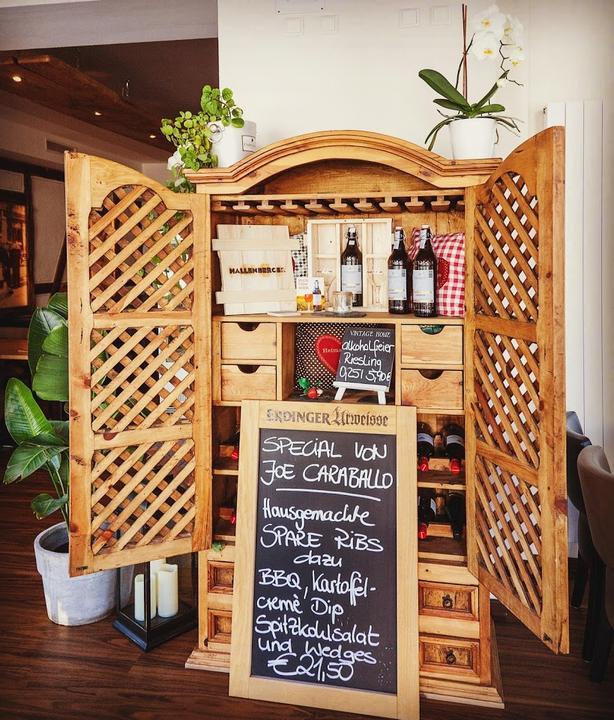 HALLENBERGER
VINTAGE HOME
alkoholfreier
Riesling
0,25l 5,90€
ERDINGER Urweisse
SPECIAL VON
JOE CARABALLO
Hausgemachte
SPARE RIBS
dazu
BBQ, Kartoffel-
creme Dip
Spitzkohlsalat
und Wedges
€21,50